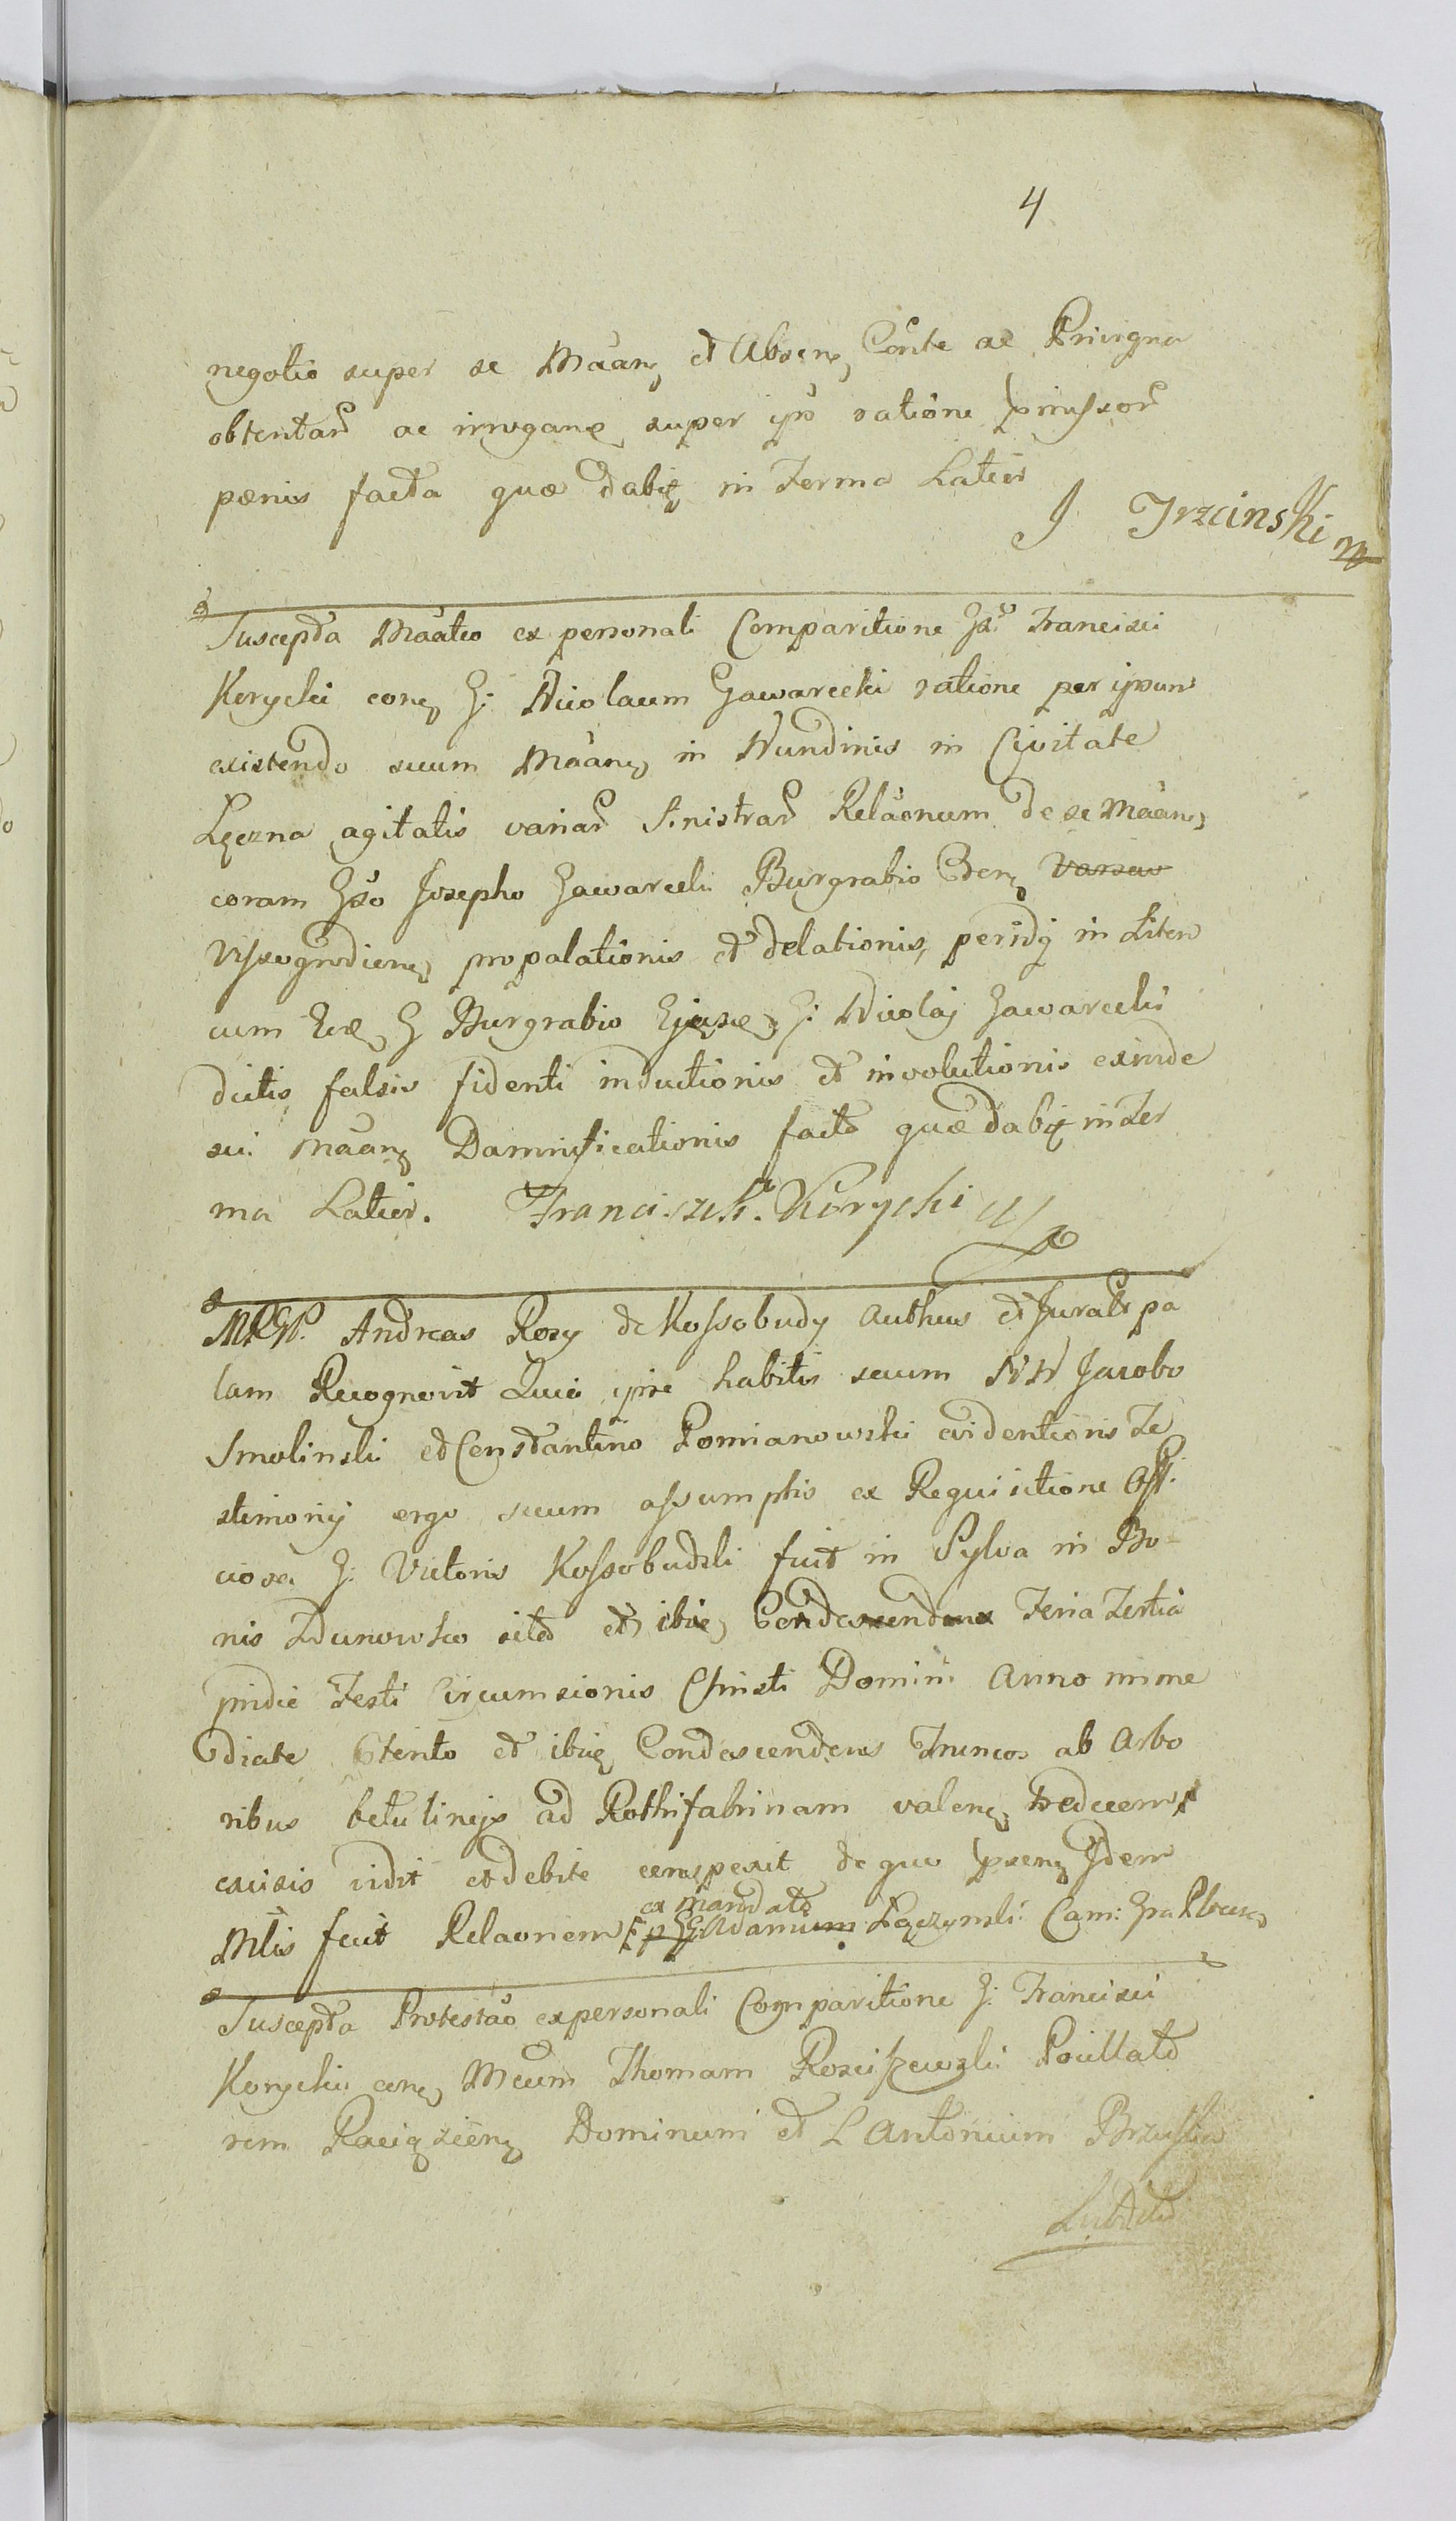 4
negotio super se Maan et Absen Conte ac Privigna
obtentar ac irrogane super ipo ratione pmissor
pœnis facta quæ dabit in Forma Latior
J Trzcinski m
Suscepta Maatio ex personali Comparitione Gsi Francisci
Korycki con G: Nicolaum Gawarecki ratione per ipsum
existendo secum Maan in Nundinis in Civitate
Łęczna agitatis variar sinistrar Relaonum de se Maan
coram Gso Josepho Gawarecki Burgrabio Cren Varsav
Vyssogrodien propalationis et delationis, peridq in Liten
cum G Burgrabio G: Nicolai Gawarecki
dictis falsis fidenti inductionis et involutionis exinde
sui maan Damnificationis facta quæ dabit in For
ma Latior. Franciszek Korycki
MRGP. Andreas Rozy de Kossobudy authus et Jurats pa
lam Recognovit Quia ipse habitis secum NN Jacobo
Smolinski et Constantino Pomianowski evidentioris Te
stimonij ergo secum assumptis ex Requisitione Off.
ciosa G: Victoris Kossobudzki fuit in Sylva in Bo-
nis Zdunowko sita et ibiq Condescendens Feria Tertia
pridie Festi Circumsionis Christi Domini Anno imme
diate Ctento et ibiq Condescendens Truncos ab Arbo
ribus betulineis ad Rothifabrinam valen tredecem
excisis vidit et debite conspexit de quo psen Idem
ex mandato
Mtlis fecit Relaonem p G: Adamum Łączynski Cam: Gra Plocen
Suscepta Protestao ex personali Comparitione G: Francisci
Korycki con Mcum Thomam Rosciszewski Pocillato
rem Raciązien Dominum et L Antonium Brzuski